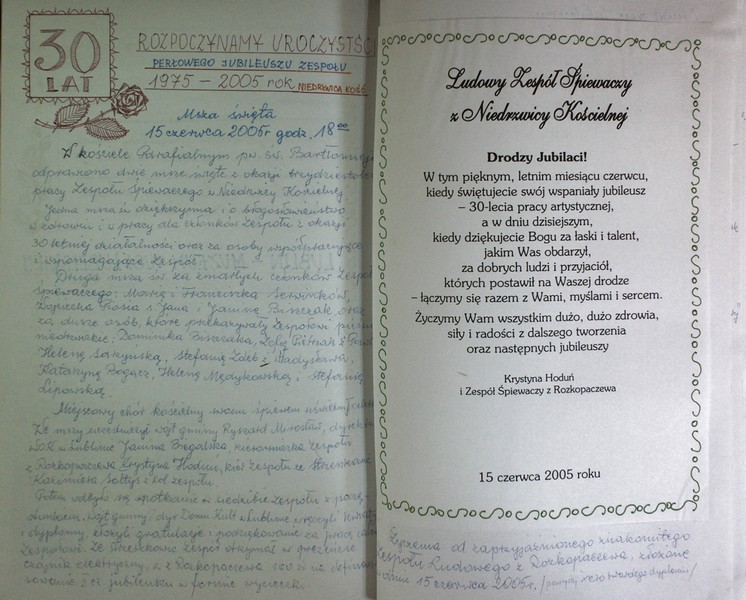 30
LAT
ROZPOCZYNAMY UROCZYSTOŚCI
PERŁOWEGO JUBILEUSZU ZESPOŁU
1975 – 2005 rok NIEDRZWICA KOŚC.
Msza święta
15 czerwca 2005r godz. 18⁰⁰
W kościele Parafialnym pw. św. Bartłomieja
odprawiono dwie msze święte z okazji trzydziestolecia
pracy Zespołu Śpiewaczego w Niedrzwicy Kościelnej.
Jedna msza św. dziękczynna i o błogosławieństwo
i w pracy dla członków Zespołu z okazji
30 letniej działalności oraz za osoby współpracujące
i wspomagające Zespół.
Druga msza św. za zmarłych członków Zespołu
śpiewaczego: Marię i Franciszka
i Jana, i Janinę Biszczak oraz
za dusze osób, które przekazywały Zespołowi pieśni
niedrzwickie: Dominika Biszczaka, Zofię Pietrak
Helenę Stefanię Władysława,
Katarzynę Bogacz, Helenę Mędykowską, Stefanię
Lipowską.
Miejscowy chór kościelny swoim śpiewem
We mszy uczestniczyli wójt gminy Ryszard
w Lublinie Janina Biegalska, kierowniczka Zespołu
z Rozkopaczewa Krystyna Hoduń, kier. zespołu ze Strzeszkowic
Kazimiera Sołtys z zespołu.
Potem odbyło się spotkanie w siedzibie Zespołu z
wójt gminy, dyr Domu Kult w Lublinie wręczyli
i dyplomy, złożyli gratulacje i podziękowanie za pracę
Zespołowi. Ze Strzeszkowic Zespół otrzymał w prezencie
czajnik elektryczny, a z Rozkopaczewa 100 zł na
jubileuszu w formie wycieczek.
Ludowy Zespół Śpiewaczy
z Niedrzwicy Kościelnej
Drodzy Jubilaci!
W tym pięknym, letnim miesiącu czerwcu,
kiedy świętujecie swój wspaniały jubileusz
– 30-lecia pracy artystycznej,
a w dniu dzisiejszym,
kiedy dziękujecie Bogu za łaski i talent,
jakim Was obdarzył,
za dobrych ludzi i przyjaciół,
których postawił na Waszej drodze
– łączymy się razem z Wami, myślami i sercem.
Życzymy Wam wszystkim dużo, dużo zdrowia,
siły i radości z dalszego tworzenia
oraz następnych jubileuszy
Krystyna Hoduń
i Zespół Śpiewaczy z Rozkopaczewa
15 czerwca 2005 roku
Życzenia od zaprzyjaźnionego znakomitego
Zespołu Ludowego z Rozkopaczewa, złożone
w dniu 15 czerwca 2005r.